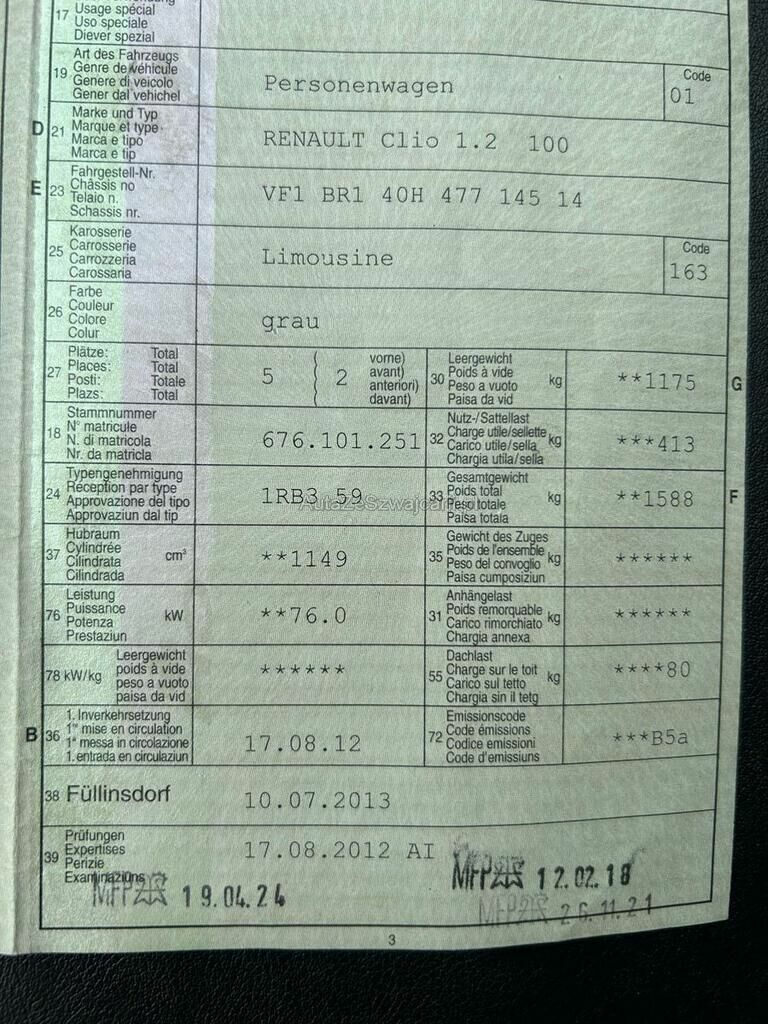 17 Usage spécial
Uso speciale
Diever spezial
19 Art des Fahrzeugs
Genre de véhicule
Genere di veicolo
Gener dal vehichel
Personenwagen
Code
01
D 21 Marke und Typ
Marque et type
Marca e tipo
Marca e tip
RENAULT Clio 1.2 100
E 23 Fahrgestell-Nr.
Châssis no
Telaio n.
Schassis nr.
VF1 BR1 40H 477 145 14
25 Karosserie
Carrosserie
Carrozzeria
Carossaria
Limousine
Code
163
26 Farbe
Couleur
Colore
Colur
grau
27 Plätze: Total
Places: Total
Posti: Totale
Plazs: Total
5 ( 2 vorne)
avant)
anteriori)
davant)
30 Leergewicht
Poids à vide
Peso a vuoto
Paisa da vid
kg
**1175
G
18 Stammnummer
N° matricule
N. di matricola
Nr. da matricla
676.101.251
32 Nutz-/Sattellast
Charge utile/sellette
Carico utile/sella
Chargia utila/sella
kg
***413
24 Typengenehmigung
Réception par type
Approvazione del tipo
Approvaziun dal tip
1RB3 59
33 Gesamtgewicht
Poids total
Peso totale
Paisa totala
kg
**1588
F
AutaZeSzwajcarii.pl
37 Hubraum
Cylindrée
Cilindrata
Cilindrada
cm³
**1149
35 Gewicht des Zuges
Poids de l'ensemble
Peso del convoglio
Paisa cumposiziun
kg
******
76 Leistung
Puissance
Potenza
Prestaziun
kW
**76.0
31 Anhängelast
Poids remorquable
Carico rimorchiato
Chargia annexa
kg
******
78 kW/kg Leergewicht
poids à vide
peso a vuoto
paisa da vid
******
55 Dachlast
Charge sur le toit
Carico sul tetto
Chargia sin il tetg
kg
****80
B 36 1. Inverkehrsetzung
1re mise en circulation
1a messa in circolazione
1. entrada en circulaziun
17.08.12
72 Emissionscode
Code émissions
Codice emissioni
Code d'emissiuns
***B5a
38 Füllinsdorf
10.07.2013
39 Prüfungen
Expertises
Perizie
Examinaziuns
17.08.2012 AI
MFP 12.02.18
MFP 19.04.24
MFP 26.11.21
3